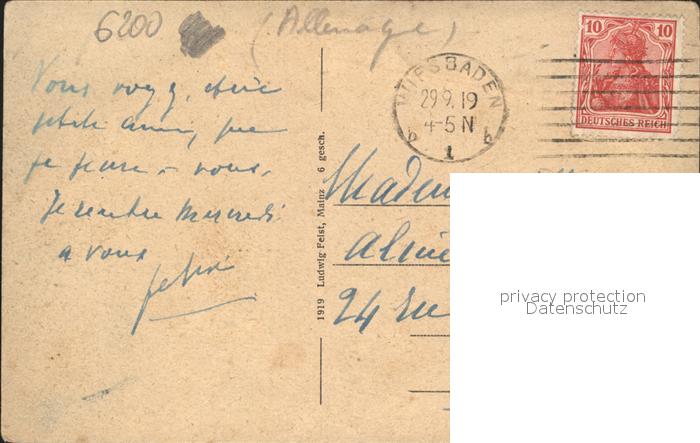 6200 (Allemagne)
10 10
DEUTSCHES REICH
WIESBADEN
29.9.19
4-5 N
b 1 b
Vous voyez, chère
petite amie, que
je pense à vous.
Je rentre Mercredi
à vous
1919 Ludwig Feist, Mainz 6 gesch.
Madem
Aline
24 Ru
privacy protection
Datenschutz